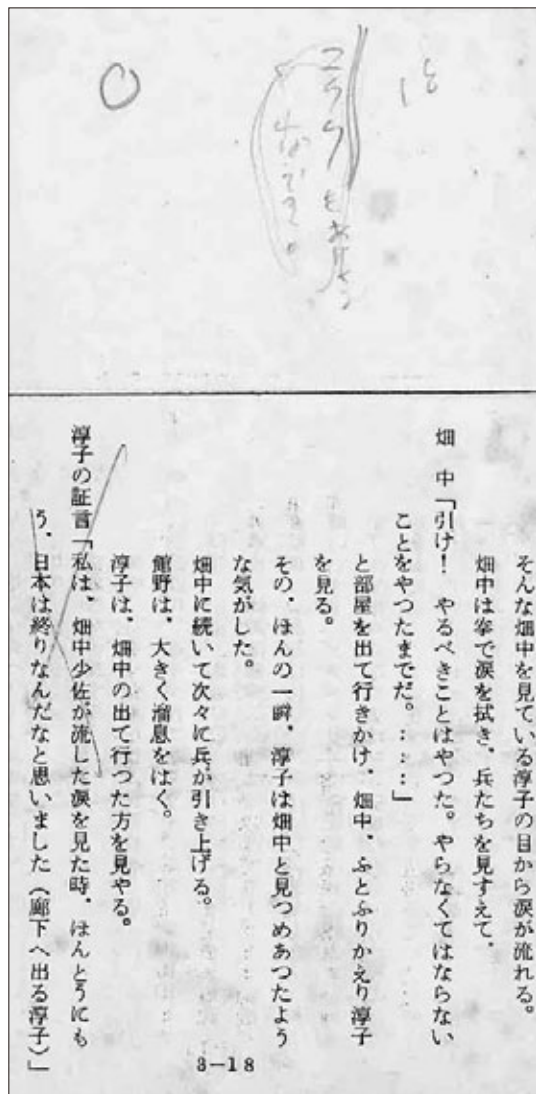 そんな畑中を見ている淳子の目から涙が流れる。
畑中は拳で涙を拭き、兵たちを見すえて、
畑　中「引け！　やるべきことはやつた。やらなくてはならない
ことをやつたまでだ。……」
と部屋を出て行きかけ、畑中、ふとふりかえり淳子
を見る。
その、ほんの一瞬、淳子は畑中と見つめあつたよう
な気がした。
畑中に続いて次々に兵が引き上げる。
館野は、大きく溜息をはく。
淳子は、畑中の出て行つた方を見やる。
淳子の証言「私は、畑中少佐が流した涙を見た時、ほんとうにも
う、日本は終りなんだなと思いました（廊下へ出る淳子）」
3－18